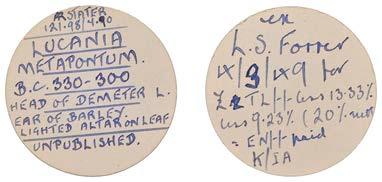 AR STATER
121.98/7.90
LUCANIA
METAPONTUM.
B.C. 330-300
HEAD OF DEMETER L.
EAR OF BARLEY.
LIGHTED ALTAR ON LEAF
UNPUBLISHED.
ex
L.S. Forrer
IX/3/ for
less 13.33%
less 9.23% (20%
= EN++ paid
K/IA